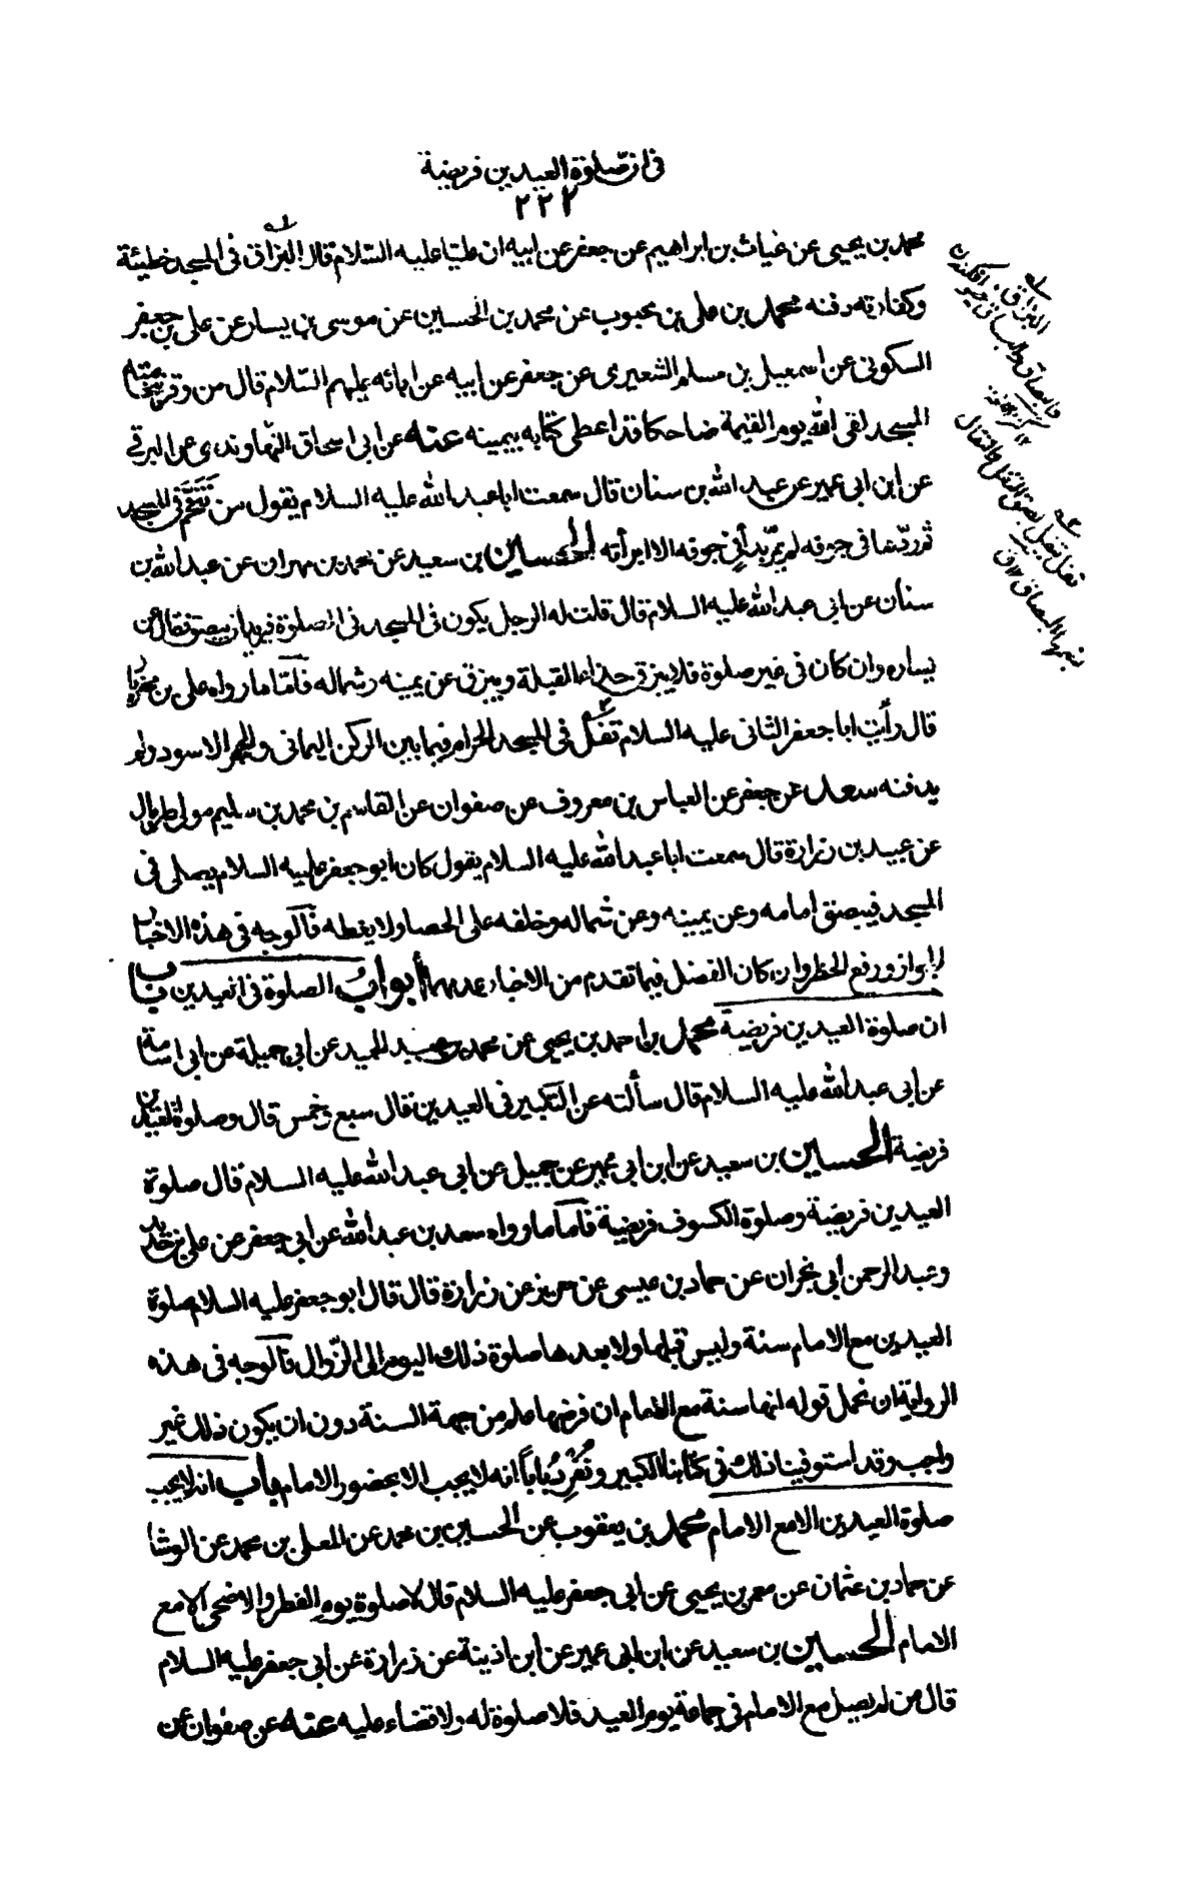 في ان صلوة العيدين فريضة
٢٢٢
محمد بن يحيى عن غياث بن ابراهيم عن جعفر عن ابيه ان عليا عليه السّلام قال البزاق فى المسجد خطيئة
وكفارته دفنه محمد بن على بن محبوب عن محمد بن الحسين عن موسى بن يسار عن على بن جعفر
السكونى عن اسمعيل بن مسلم الشعيرى عن جعفر عن ابيه عن ابائه عليهم السّلام قال من وقر بنخامته
المسجد لقى الله يوم القيمة ضاحكا قد اعطى كتابه بيمينه عنه عن ابى اسحاق النهاوندى عن البرقى
عن ابن ابى عمير عن عبد الله بن سنان قال سمعت ابا عبد الله عليه السلام يقول من تنخّم فى المسجد
ثم ردّها فى جوفه لم تمرّ بداءٍ فى جوفه الا ابرأته الحسين بن سعيد عن محمد بن مهران عن عبد الله بن
سنان عن ابى عبد الله عليه السلام قال قلت له الرجل يكون فى المسجد فى الصلوة فيريد ان يبصق فقال عن
يساره وان كان فى غير صلوة فلا يبزق حذاء القبلة ويبزق عن يمينه وشماله فامّا ما رواه على بن مهزيار
قال رأيت ابا جعفر الثانى عليه السلام تفل فى المسجد الحرام فيما بين الركن اليمانى والحجر الاسود ولم
يدفنه سعد عن جعفر عن العباس بن معروف عن صفوان عن القاسم بن محمد بن سليم مولى طربال
عن عبيد بن زرارة قال سمعت ابا عبد الله عليه السلام يقول كان ابو جعفر عليه السلام يصلى فى
المسجد فيبصق امامه وعن يمينه وعن شماله وخلفه على الحصا ولا يغطه فالوجه فى هذه الاخبار
الجواز ورفع الحظر وان كان الفضل فيما تقدم من الاخبار أبواب الصلوة فى العيدين باب
ان صلوة العيدين فريضة محمد بن احمد بن يحيى عن محمد بن عبد الحميد عن ابى جميلة عن ابى اسامة
عن ابى عبد الله عليه السلام قال سألته عن التكبير فى العيدين قال سبع وخمس قال وصلوة العيدين
فريضة الحسين بن سعيد عن ابن ابى عمير عن جميل عن ابى عبد الله عليه السلام قال صلوة
العيدين فريضة وصلوة الكسوف فريضة فاما ما رواه سعد بن عبد الله عن ابى جعفر عن على بن حديد
وعبد الرحمن ابى نجران عن حماد بن عيسى عن حريز عن زرارة قال قال ابو جعفر عليه السلام صلوة
العيدين مع الامام سنة وليس قبلها ولا بعدها صلوة ذلك اليوم الى الزّوال فالوجه فى هذه
الرواية ان نحمل قوله انها سنة مع الامام ان فرضها علم من جهة السنة دون ان يكون ذلك غير
واجب وقد استوفينا ذلك فى كتابنا الكبير ونُفرِدُ باباً انه لا يجب الا بحضور الامام باب انه لا يجب
صلوة العيدين الا مع الامام محمد بن يعقوب عن الحسين بن محمد عن المعلى بن محمد عن الوشا
عن حماد بن عثمان عن معمر بن يحيى عن ابى جعفر عليه السلام قال لا صلوة يوم الفطر والاضحى الا مع
الامام الحسين بن سعيد عن ابن ابى عمير عن ابن اذينة عن زرارة عن ابى جعفر عليه السلام
قال من لم يصل مع الامام فى جماعة يوم العيد فلا صلوة له ولا قضاء عليه عنه عن صفوان عن